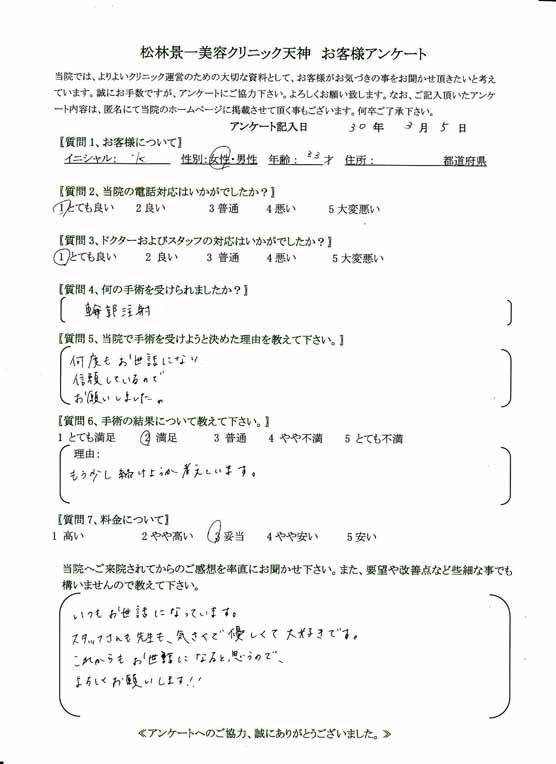 松林景一美容クリニック天神 お客様アンケート
当院では、よりよいクリニック運営のための大切な資料として、お客様がお気づきの事をお聞かせ頂きたいと考え
ています。誠にお手数ですが、アンケートにご協力下さい。よろしくお願い致します。なお、ご記入頂いたアンケ
ート内容は、匿名にて当院のホームページに掲載させて頂く事もございます。何卒ご了承下さい。
アンケート記入日 30年 3月 5日
〖質問1、お客様について〗
イニシャル: K 性別:女性・男性 年齢: 33才 住所: 都道府県
〖質問2、当院の電話対応はいかがでしたか?〗
1とても良い 2良い 3普通 4悪い 5大変悪い
〖質問3、ドクターおよびスタッフの対応はいかがでしたか?〗
1とても良い 2 良い 3 普通 4悪い 5大変悪い
〖質問4、何の手術を受けられましたか?〗
輪郭注射
〖質問5、当院で手術を受けようと決めた理由を教えて下さい。〗
何度もお世話になり
信頼しているので
お願いしました。
〖質問6、手術の結果について教えて下さい。〗
1 とても満足 2 満足 3 普通 4 やや不満 5 とても不満
理由:
もう少し続けようか考えています。
〖質問7、料金について〗
1 高い 2 やや高い 3 妥当 4 やや安い 5 安い
当院へご来院されてからのご感想を率直にお聞かせ下さい。また、要望や改善点など些細な事でも
構いませんので教えて下さい。
いつもお世話になっています。
スタッフさんも先生も、気さくで優しくて大好きです。
これからもお世話になると思うので、
よろしくお願いします!!
≪アンケートへのご協力、誠にありがとうございました。≫